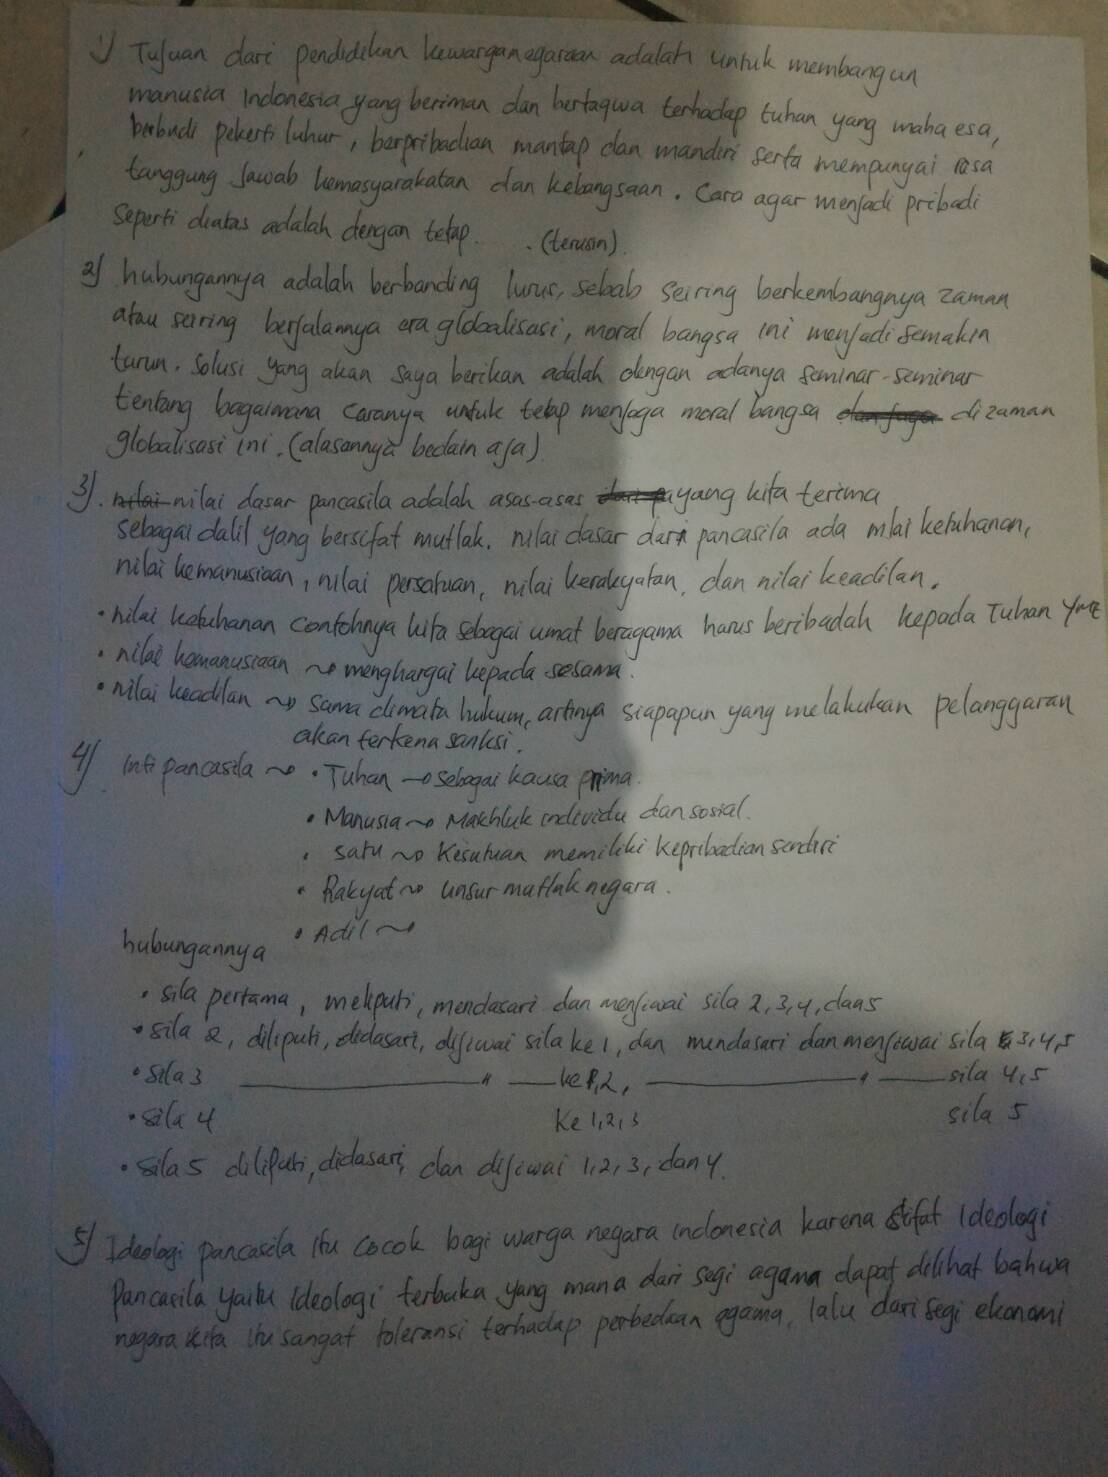 1) Tujuan dari pendidikan kewarganegaraan adalah untuk membangun
manusia Indonesia yang beriman dan bertaqwa terhadap tuhan yang maha esa,
berbudi pekerti luhur, berpribadian mantap dan mandiri serta mempunyai rasa
tanggung jawab kemasyarakatan dan kebangsaan. Cara agar menjadi pribadi
seperti diatas adalah dengan tetap . . . (terusin)
2) hubungannya adalah berbanding lurus, sebab seiring berkembangnya zaman
atau seiring berjalannya era globalisasi, moral bangsa ini menjadi semakin
turun. Solusi yang akan saya berikan adalah dengan adanya seminar-seminar
tentang bagaimana caranya untuk tetap menjaga moral bangsa dan juga dizaman
globalisasi ini. (alasannya bedain aja)
3). nilai nilai dasar pancasila adalah asas-asas dari pa yang kita terima
sebagai dalil yang bersifat mutlak. nilai dasar dari pancasila ada nilai ketuhanan,
nilai kemanusiaan, nilai persatuan, nilai kerakyatan, dan nilai keadilan.
• nilai ketuhanan contohnya kita sebagai umat beragama harus beribadah kepada Tuhan YME
• nilai kemanusiaan ~> menghargai kepada sesama.
• nilai keadilan ~> sama dimata hukum, artinya siapapun yang melakukan pelanggaran
akan terkena sanksi.
4) inti pancasila ~> • Tuhan → sebagai kausa prima.
• Manusia ~> Makhluk individu dan sosial.
• satu ~> Kesatuan memiliki kepribadian sendiri
• Rakyat ~> unsur mutlak negara.
• Adil ~>
hubungannya
• sila pertama, meliputi, mendasari dan menjiwai sila 2, 3, 4, dan 5
• sila 2, diliputi, didasari, dijiwai sila ke 1, dan mendasari dan menjiwai sila 3, 4, 5
• sila 3 ———— " —— ke 1, 2, ———— " —— sila 4, 5
• sila 4 ke 1, 2, 3 sila 5
• sila 5 diliputi, didasari, dan dijiwai 1, 2, 3, dan 4.
5) Ideologi pancasila itu cocok bagi warga negara indonesia karena sifat Ideologi
Pancasila yaitu Ideologi terbuka yang mana dari segi agama dapat dilihat bahwa
negara kita itu sangat toleransi terhadap perbedaan agama, lalu dari segi ekonomi